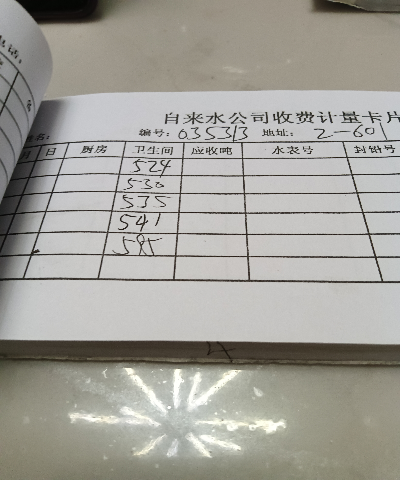 自来水公司收费计量卡片
编号: 035313 地址: 2-601
月 日 厨房 卫生间 应收吨 水表号 封铅号
524
530
535
541
595